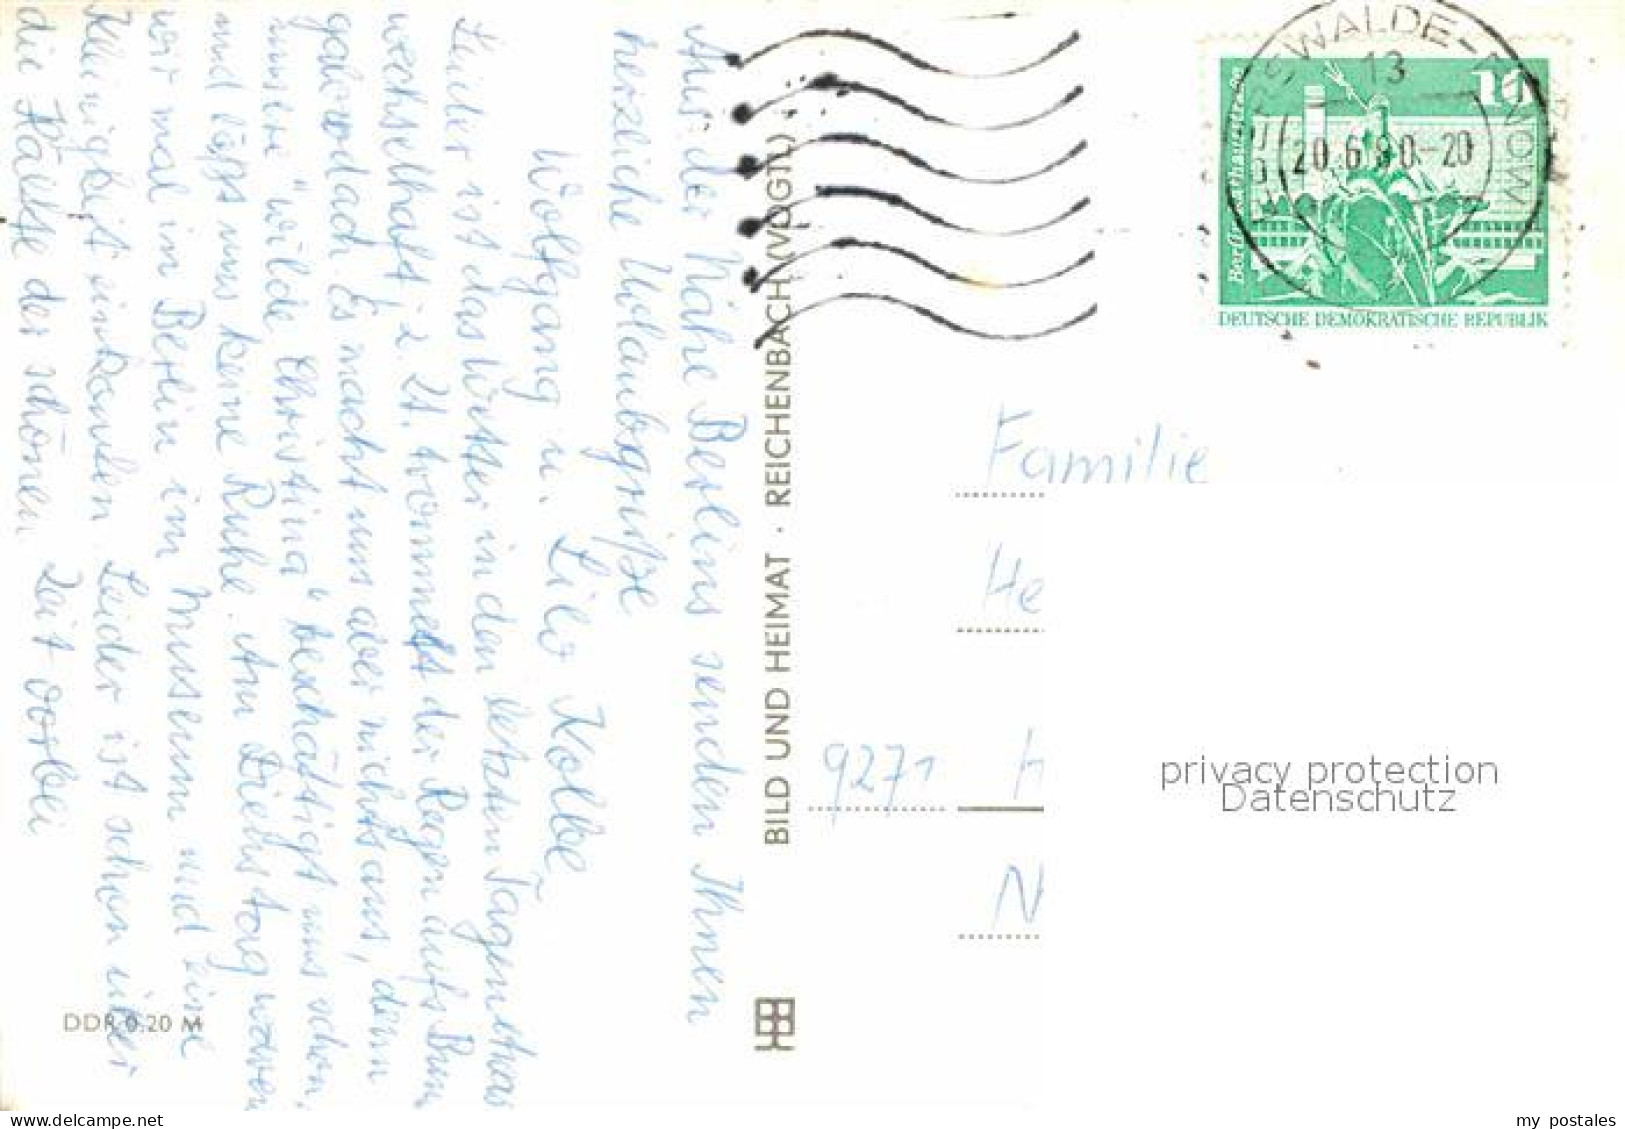 Aus der Nähe Berlins senden Ihnen
herzliche Urlaubsgrüße
Wolfgang u. Lilo Kolbe
Leider ist das Wetter in den letzten Tagen etwas
wechselhaft, z. Zt. trommelt der Regen aufs Bun
galowdach Es macht uns aber nichts aus, denn
unsere "wilde Christina" beschäftigt uns schon,
und lässt uns keine Ruhe. Am Dienstag waren
wir mal in Berlin im Museum und eine
Kleinigkeit einkaufen. Leider ist schon über
die Hälfte der schönen Zeit vorbei
DDR 0,20 M
BILD UND HEIMAT · REICHENBACH (VOGTL)
SWALDE-FINOW
13
20.6.80-20
10
DEUTSCHE DEMOKRATISCHE REPUBLIK
Familie
He
9271 H
N
privacy protection
Datenschutz
www.delcampe.net
my_postales